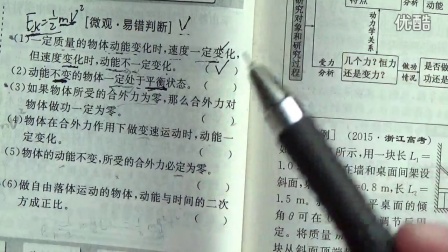 Ek=½mv² [微观·易错判断] √
(1)一定质量的物体动能变化时,速度一定变化,
但速度变化时,动能不一定变化。 (√)
(2)动能不变的物体一定处于平衡状态。 ( )
(3)如果物体所受的合外力为零,那么合外力对
物体做功一定为零。 ( )
(4)物体在合外力作用下做变速运动时,动能一
定变化。 ( )
(5)物体的动能不变,所受的合外力必定为零。
( )
(6)做自由落体运动的物体,动能与时间的二次
方成正比。 ( )
研究对象和研究过程
特点
分析
动力学关系
受力分析
几个力?恒力
还是变力?
做功情况
是否做
功还是
优酷
例] (2015·浙江高考)
所示,用一块长L₁=
在墙和桌面间架设
斜面,
=0.8 m,长L₂=
1.5 m。
平桌面的倾
角θ可在
调节后固
定。将质量
块从斜面顶端